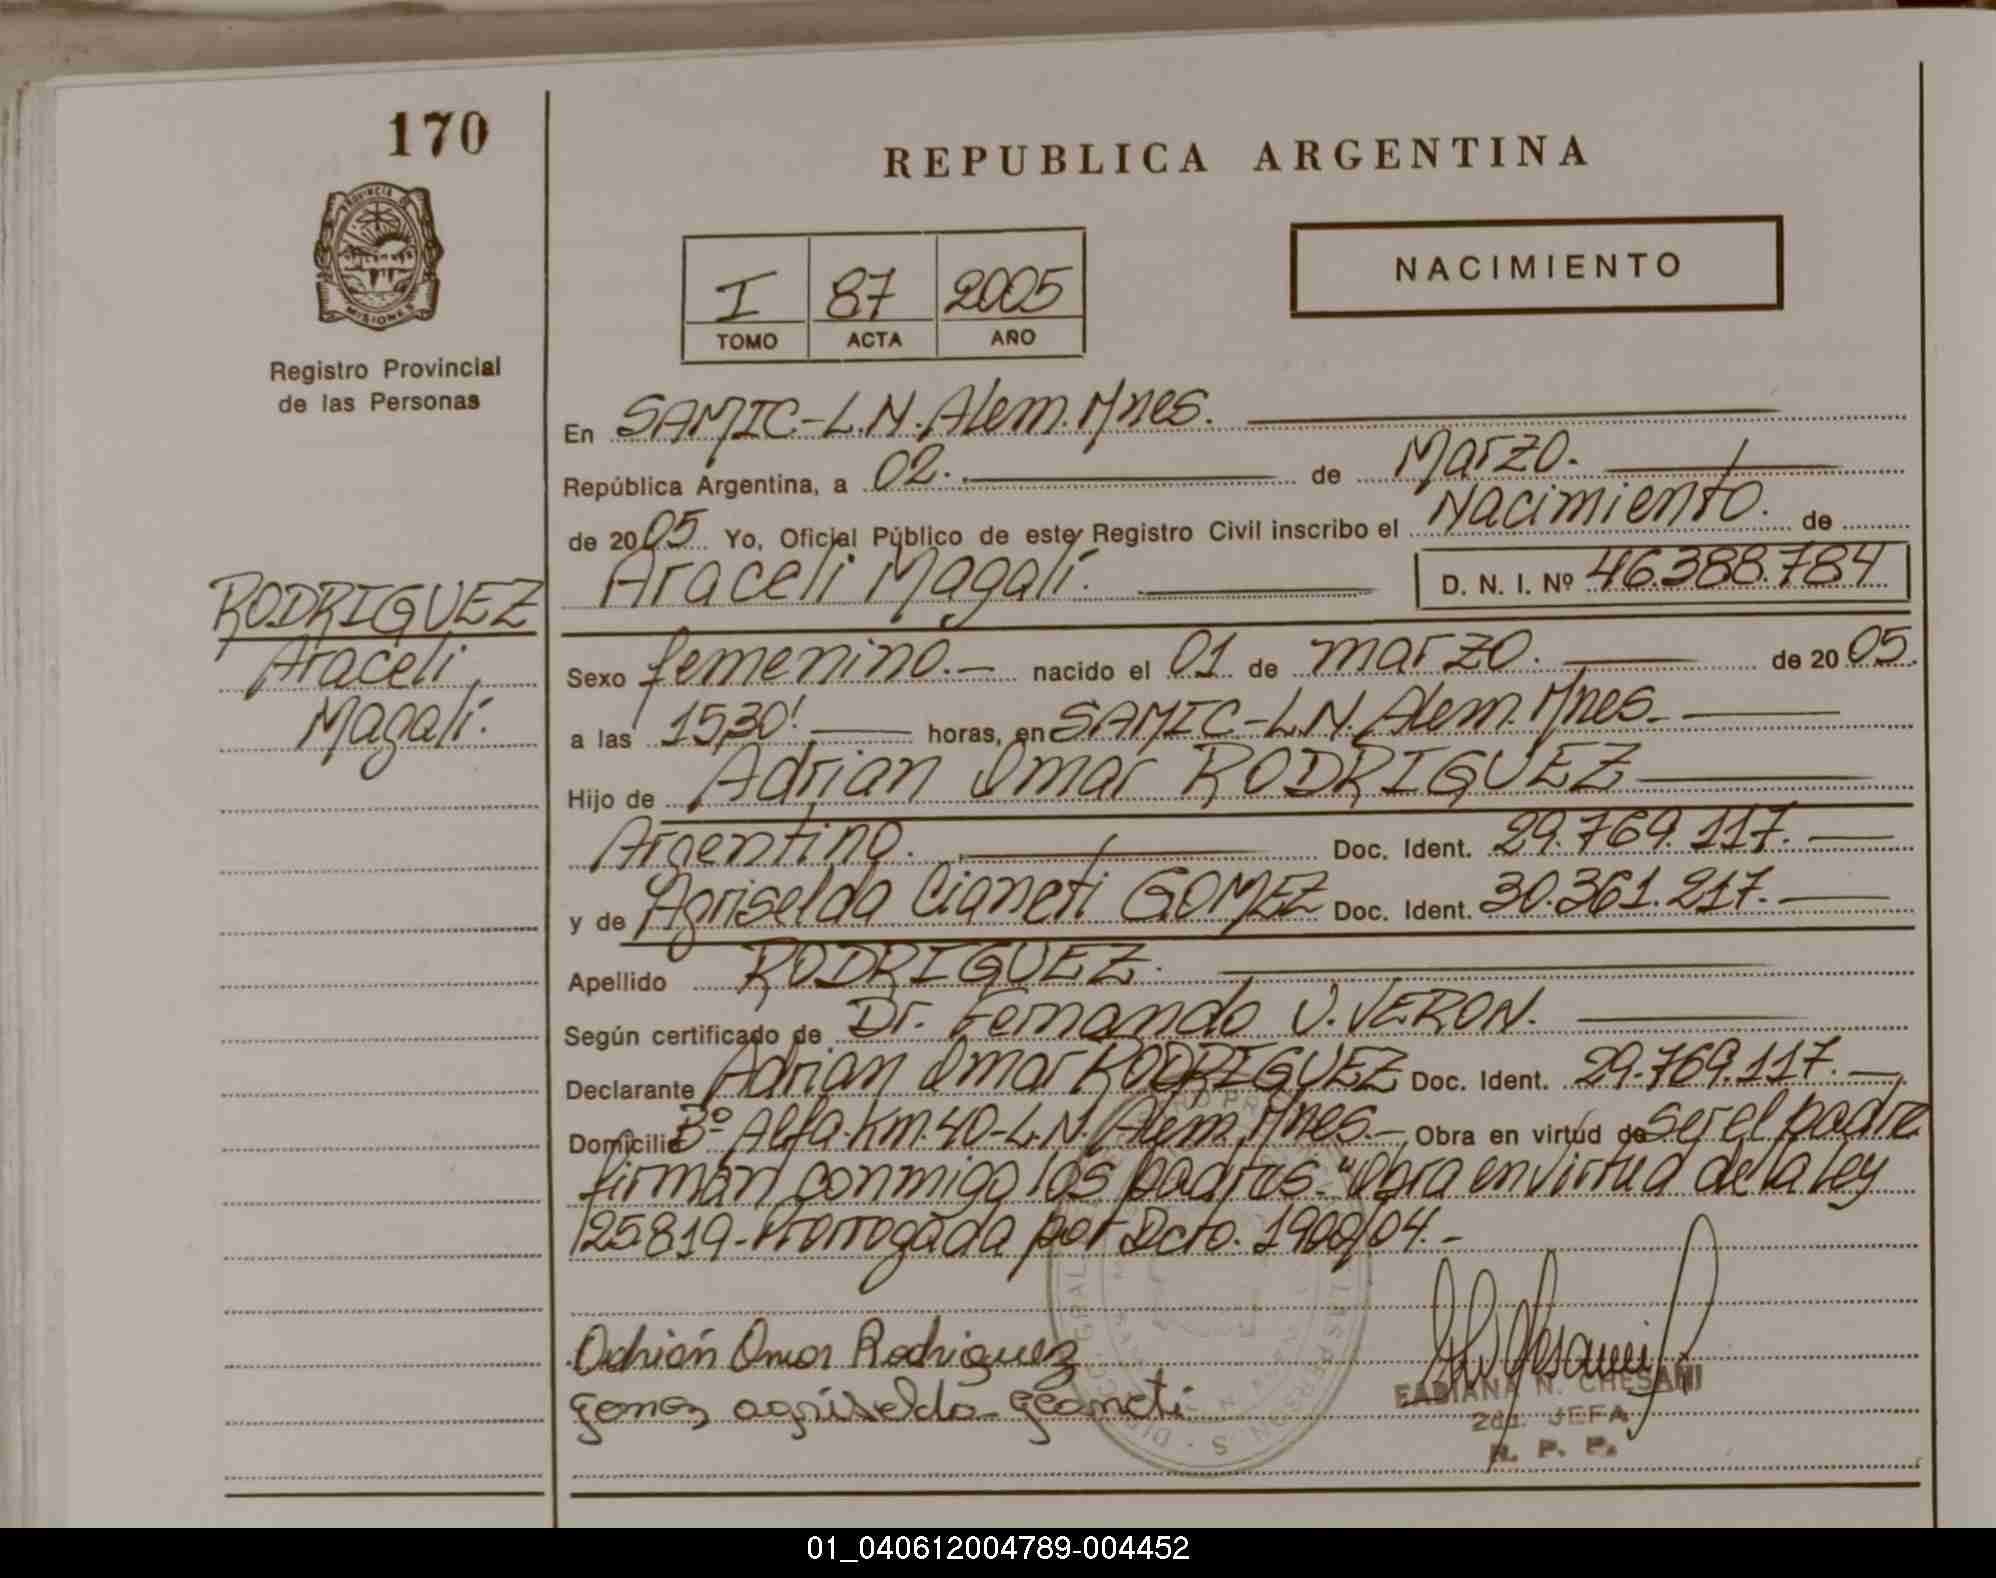 170
REPUBLICA ARGENTINA
PROVINCIA DE
MISIONES
Registro Provincial
de las Personas
I 87 2005
TOMO ACTA AÑO
NACIMIENTO
En SAMIC-L.N.Alem.Mnes.
República Argentina, a 02. de Marzo.
de 2005 Yo, Oficial Público de este Registro Civil inscribo el Nacimiento. de
Araceli Magalí. D. N. I. Nº 46.388.784
RODRIGUEZ
Araceli
Magalí.
Sexo femenino.- nacido el 01 de marzo. de 2005.
a las 15,30' horas, en SAMIC-L.N. Alem. Mnes.
Hijo de Adrian Omar RODRIGUEZ
Argentino. Doc. Ident. 29.769.117.
y de Agriselda Cianeti GOMEZ Doc. Ident. 30.361.217.
Apellido RODRIGUEZ.
Según certificado de Dr. Fernando V. VERON.
Declarante Adrian Omar RODRIGUEZ Doc. Ident. 29.769.117.
Domicilio Bº Alfa.Km.40-L.N. Alem, Mnes.- Obra en virtud de ser el padre
firman conmigo los padres. "Obra en virtud de la ley
25819-Prorrogada por Dcto. 1900/04.-
Adrián Omar Rodriguez
gomez agriselda geaneti
FABIANA N. CHESANI
2da. JEFA
R. P. P.
01_040612004789-004452